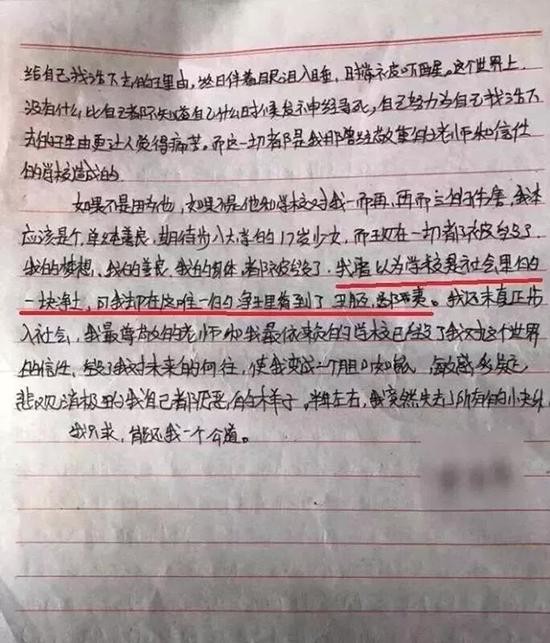 给自己找活下去的理由，终日伴着眼泪入睡，时常被吓醒。这个世界上
没有什么比自己都不知道自己什么时候发神经寻死，自己努力为自己找活下
去的理由更让人觉得痛苦。而这一切都是我那曾经敬重的老师和信任
的学校造成的
如果不是因为他，如果不是他和学校对我一而再、再而三的伤害，我本
应该是个单纯善良，期待步入大学的17岁少女，而现在一切都被毁了
我的梦想、我的善良、我的身体，都被毁了。我曾以为学校是社会里的
一块净土，可我却在这唯一的净土里看到了丑陋，恶
。我还未真正步
入社会，我最尊敬的老师和我最依赖的学校已经毁了我对这个世界
的信任，毁了我对未来的向往，使我变成一个胆小如鼠，敏感多疑，
悲观消极的我自己都厌恶的样子，半年左右，我突然失去了所有的小夹
我只求，能还我一个公道。